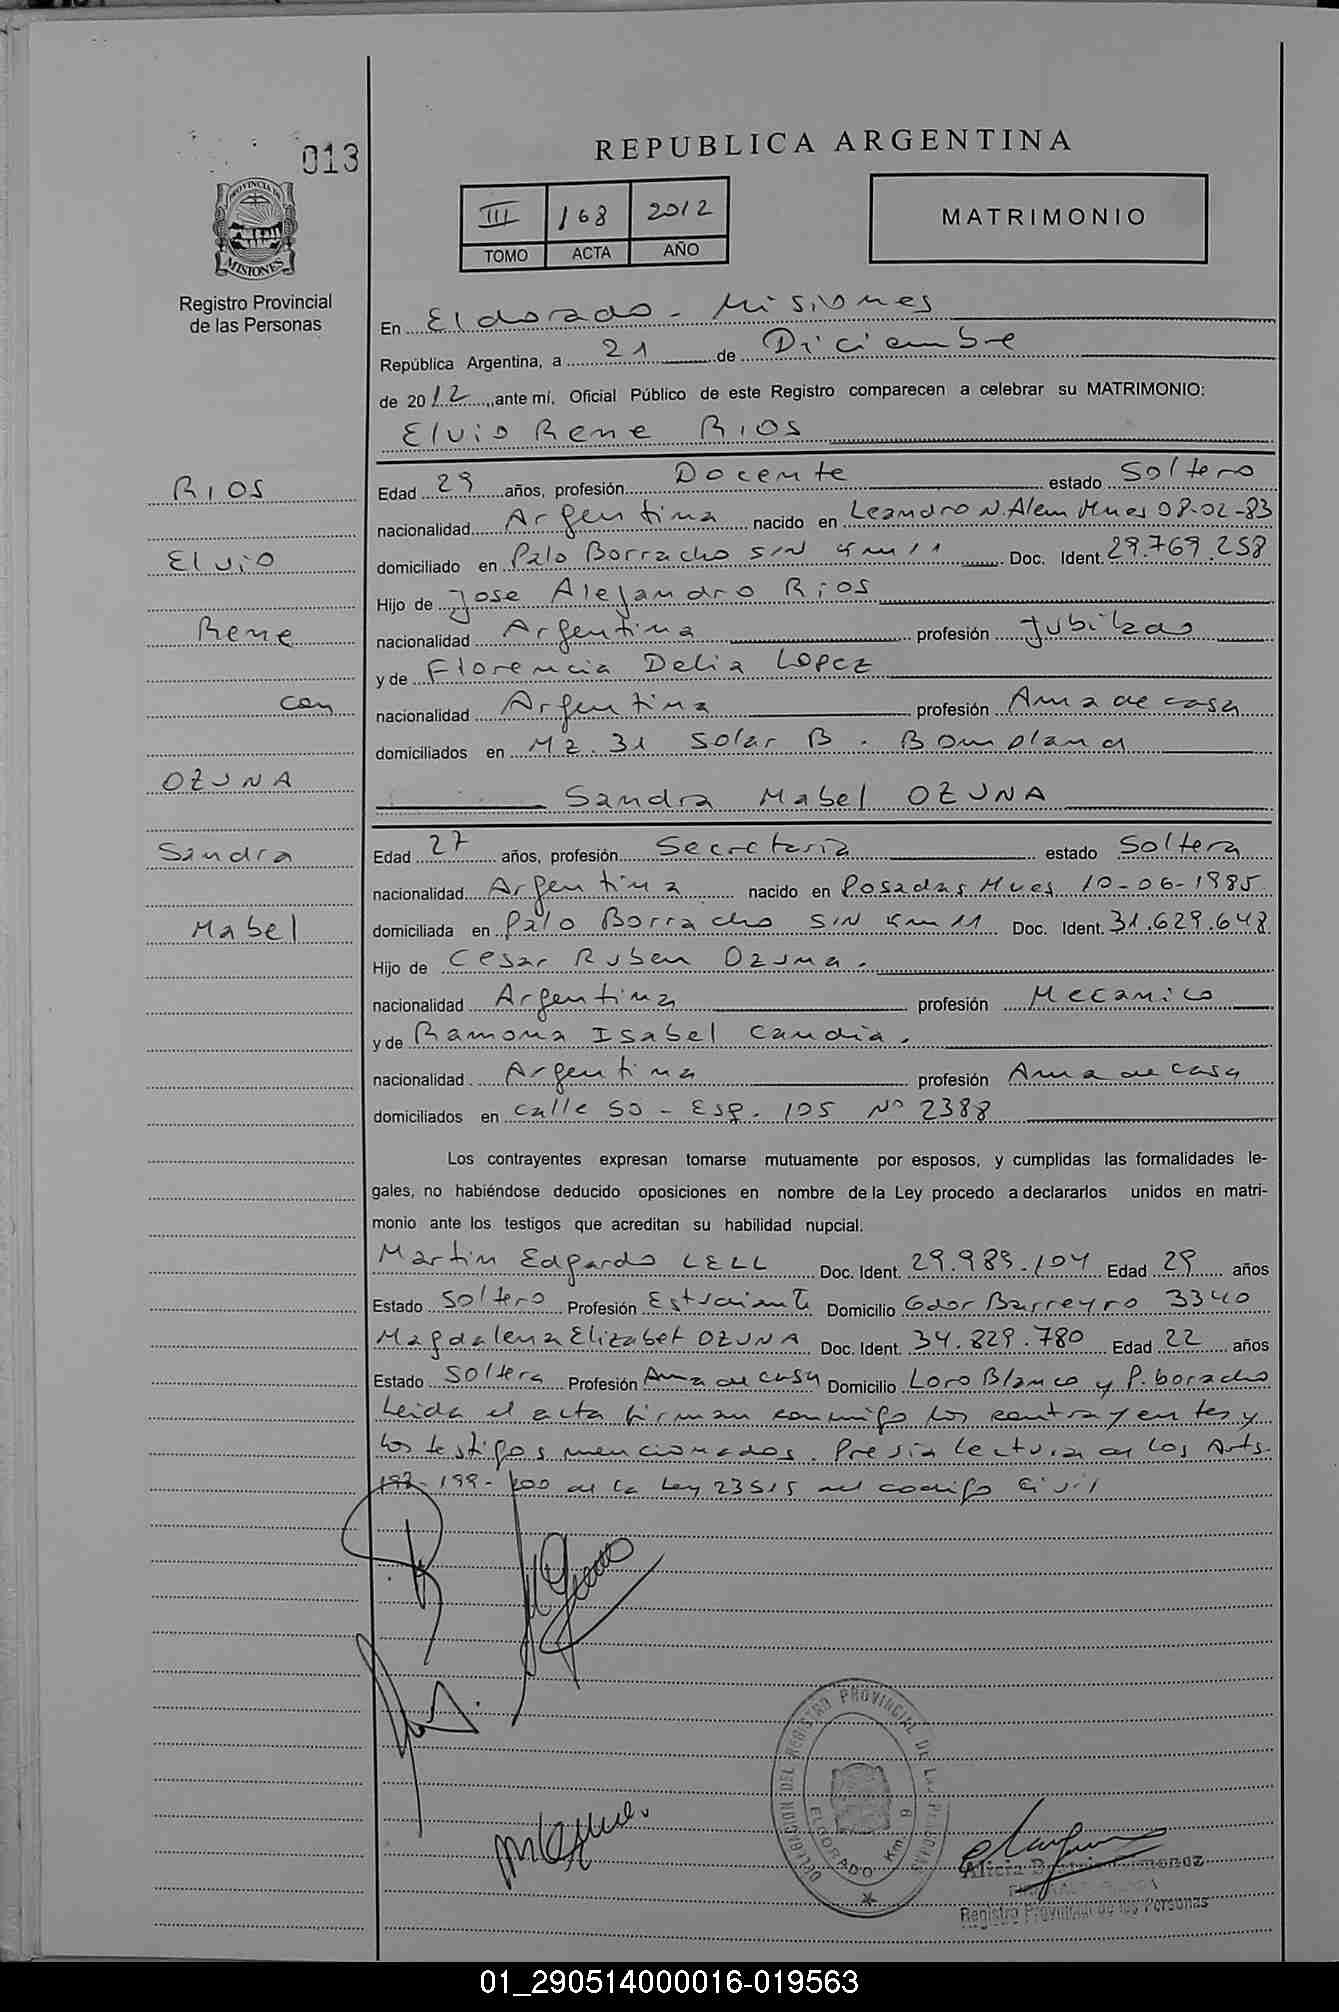 013
REPUBLICA ARGENTINA
PROVINCIA DE
MISIONES
Registro Provincial
de las Personas
III 168 2012
TOMO ACTA AÑO
MATRIMONIO
En Eldorado - Misiones
República Argentina, a 21 de Diciembre
de 2012, ante mí, Oficial Público de este Registro comparecen a celebrar su MATRIMONIO:
Elvio Rene RIOS
RIOS
Elvio
Rene
con
OZUNA
Sandra
Mabel
Edad 29 años, profesión Docente estado Soltero
nacionalidad Argentina nacido en Leandro N. Alem Mnes 08-02-83
domiciliado en Palo Borracho S/N Km 11 Doc. Ident. 29.769.258
Hijo de Jose Alejandro Rios
nacionalidad Argentina profesión Jubilado
y de Florencia Delia Lopez
nacionalidad Argentina profesión Ama de casa
domiciliados en Mz. 31 Solar B. Bompland
Sandra Mabel OZUNA
Edad 27 años, profesión Secretaria estado Soltera
nacionalidad Argentina nacido en Posadas Mnes 10-06-1985
domiciliada en Palo Borracho S/N Km 11 Doc. Ident. 31.629.648
Hijo de Cesar Ruben Ozuna.
nacionalidad Argentina profesión Mecanico
y de Ramona Isabel Candia.
nacionalidad Argentina profesión Ama de casa
domiciliados en Calle 50 - Esq. 105 Nº 2388
Los contrayentes expresan tomarse mutuamente por esposos, y cumplidas las formalidades le-
gales, no habiéndose deducido oposiciones en nombre de la Ley procedo a declararlos unidos en matri-
monio ante los testigos que acreditan su habilidad nupcial.
Martin Edgardo LELL Doc. Ident. 29.989.104 Edad 29 años
Estado Soltero Profesión Estudiante Domicilio Gdor Barreyro 3340
Magdalena Elizabet OZUNA Doc. Ident. 34.829.780 Edad 22 años
Estado Soltera Profesión Ama de casa Domicilio Loro Blanco y P. boracho
Leida el acta firman conmigo los contrayentes y
los testigos mencionados. Previa lectura de los Arts.
198-199-200 de la Ley 23515 del codigo Civil
DELEGACION DEL REGISTRO PROVINCIAL DE LAS PERSONAS
ELDORADO Km. 9
Alicia
Registro Provincial de las Personas
01_290514000016-019563